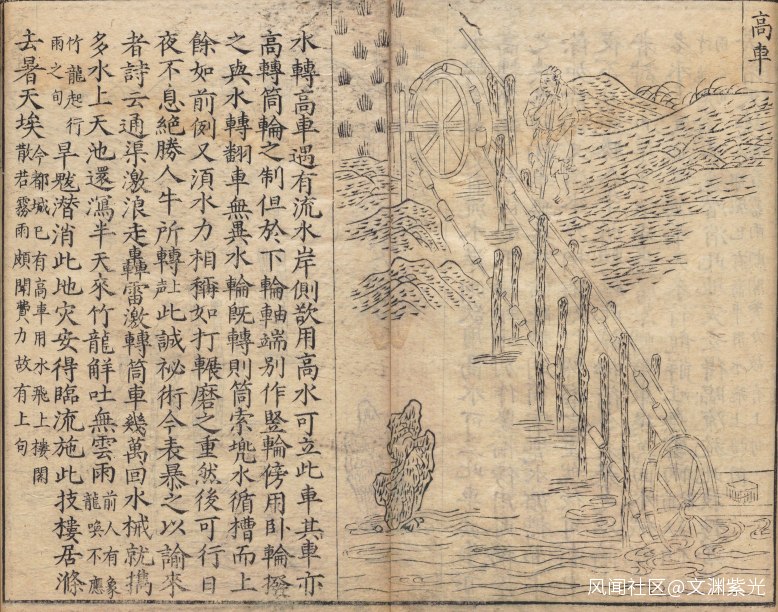 高車
水轉高車遇有流水岸側欲用高水可立此車其車亦
高轉筒輪之制但於下輪軸端別作豎輪傍用卧輪撥
之與水轉翻車無異水輪既轉則筒索兠水循槽而上
餘如前例又須水力相稱如打輾磨之重然後可行日
夜不息絶勝人牛所轉此誠祕術今表暴之以諭來
者詩云通渠激浪走轟雷激轉筒車幾萬回水械就攜
多水上天池還瀉半天來竹龍解吐無雲雨
前人有象
龍喚不應
竹龍起行
雨之句
旱魃潛消此地灾安得臨流施此技樓居滌
去暑天埃
今都城已有高車用水飛上樓閣
散若霧雨頗聞費力故有上句
风闻社区@文渊紫光